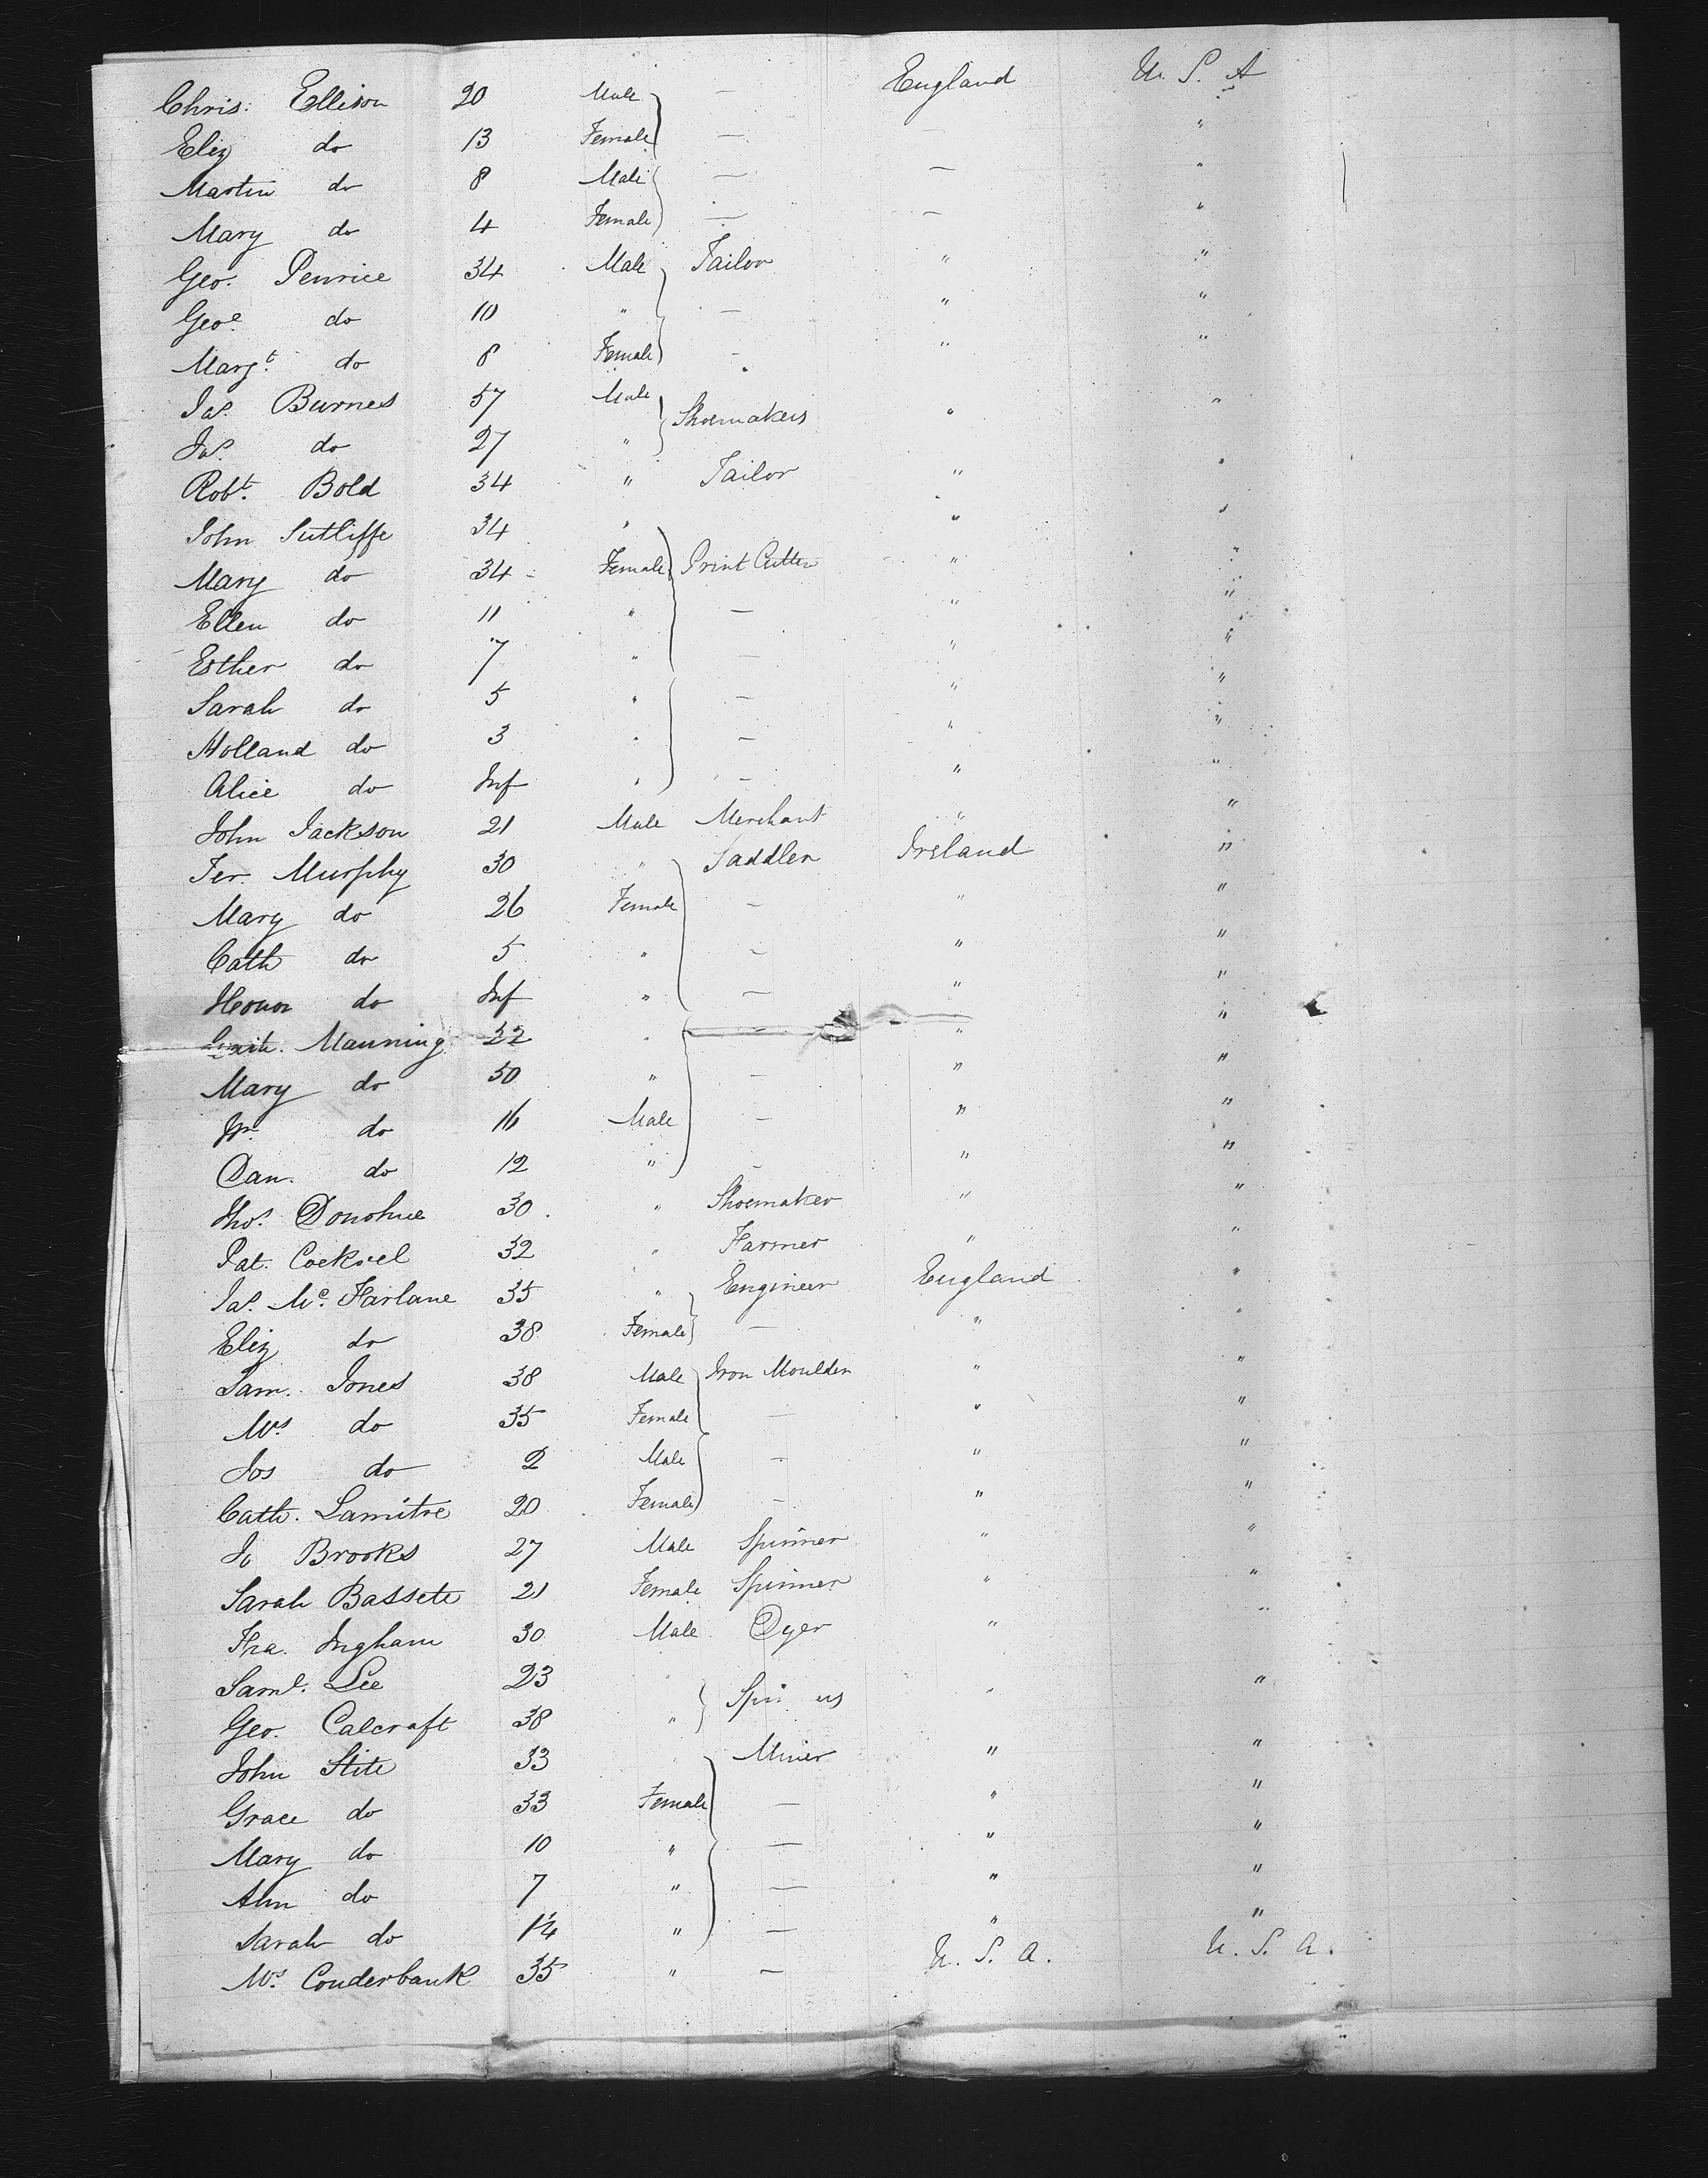 Chris. Ellison 20 Male — England U. S. A
Eliz do 13 Female — — "
Martin do 8 Male — — "
Mary do 4 Female — — "
Geo. Penrice 34 Male Tailor " "
Geo. do 10 " — " "
Margt. do 8 Female — " "
Jas. Burnes 57 Male Shoemakers " "
Jas. do 27 "
Robt. Bold 34 " Tailor " "
John Sutliffe 34 " " "
Mary do 34 Female Print Cutter " "
Ellen do 11 " — " "
Esther do 7 " — " "
Sarah do 5 " — " "
Holland do 3 " — " "
Alice do Inf " — " "
John Jackson 21 Male Merchant " "
Jer. Murphy 30 " Saddler Ireland "
Mary do 26 Female — " "
Cath do 5 " — " "
Honor do Inf " — " "
Manning 32 " — " "
Mary do 50 " — " "
do 16 Male — " "
Dan. do 12 " — " "
Thos. Donohue 30 " Shoemaker " "
Pat. Cockrel 32 " Farmer " "
Jas. Mc. Farlane 35 " Engineer England "
Eliz do 38 Female — " "
Sam. Jones 38 Male Iron Moulder " "
Mrs. do 35 Female — " "
Jos do 2 Male — " "
Cath. Lamitre 20 Female — " "
Jo Brooks 27 Male Spinner " "
Sarah Bassete 21 Female Spinner " "
Fra. Ingham 30 Male Dyer " "
Saml. Lee 23 " Spin ers " "
Geo. Calcraft 38 "
John Stite 33 " Miner " "
Grace do 33 Female — " "
Mary do 10 " — " "
Ann do 7 " — " "
Sarah do 1¼ " — " "
Mrs. Couderbank 35 " — U. S. A. U. S. A.